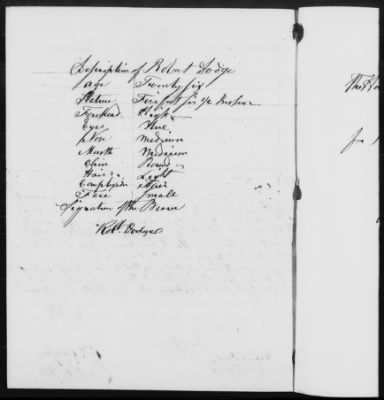 Description of Robert Dodge
Age Twenty Six
Stature Five feet Six ½ Inches
Forehead High
Eye Blue
Nose Medium
Mouth Medium
Chin Round
Hair Light
Complexion Fair
Face Small
Signature of the Bearer
Robt. Dodge